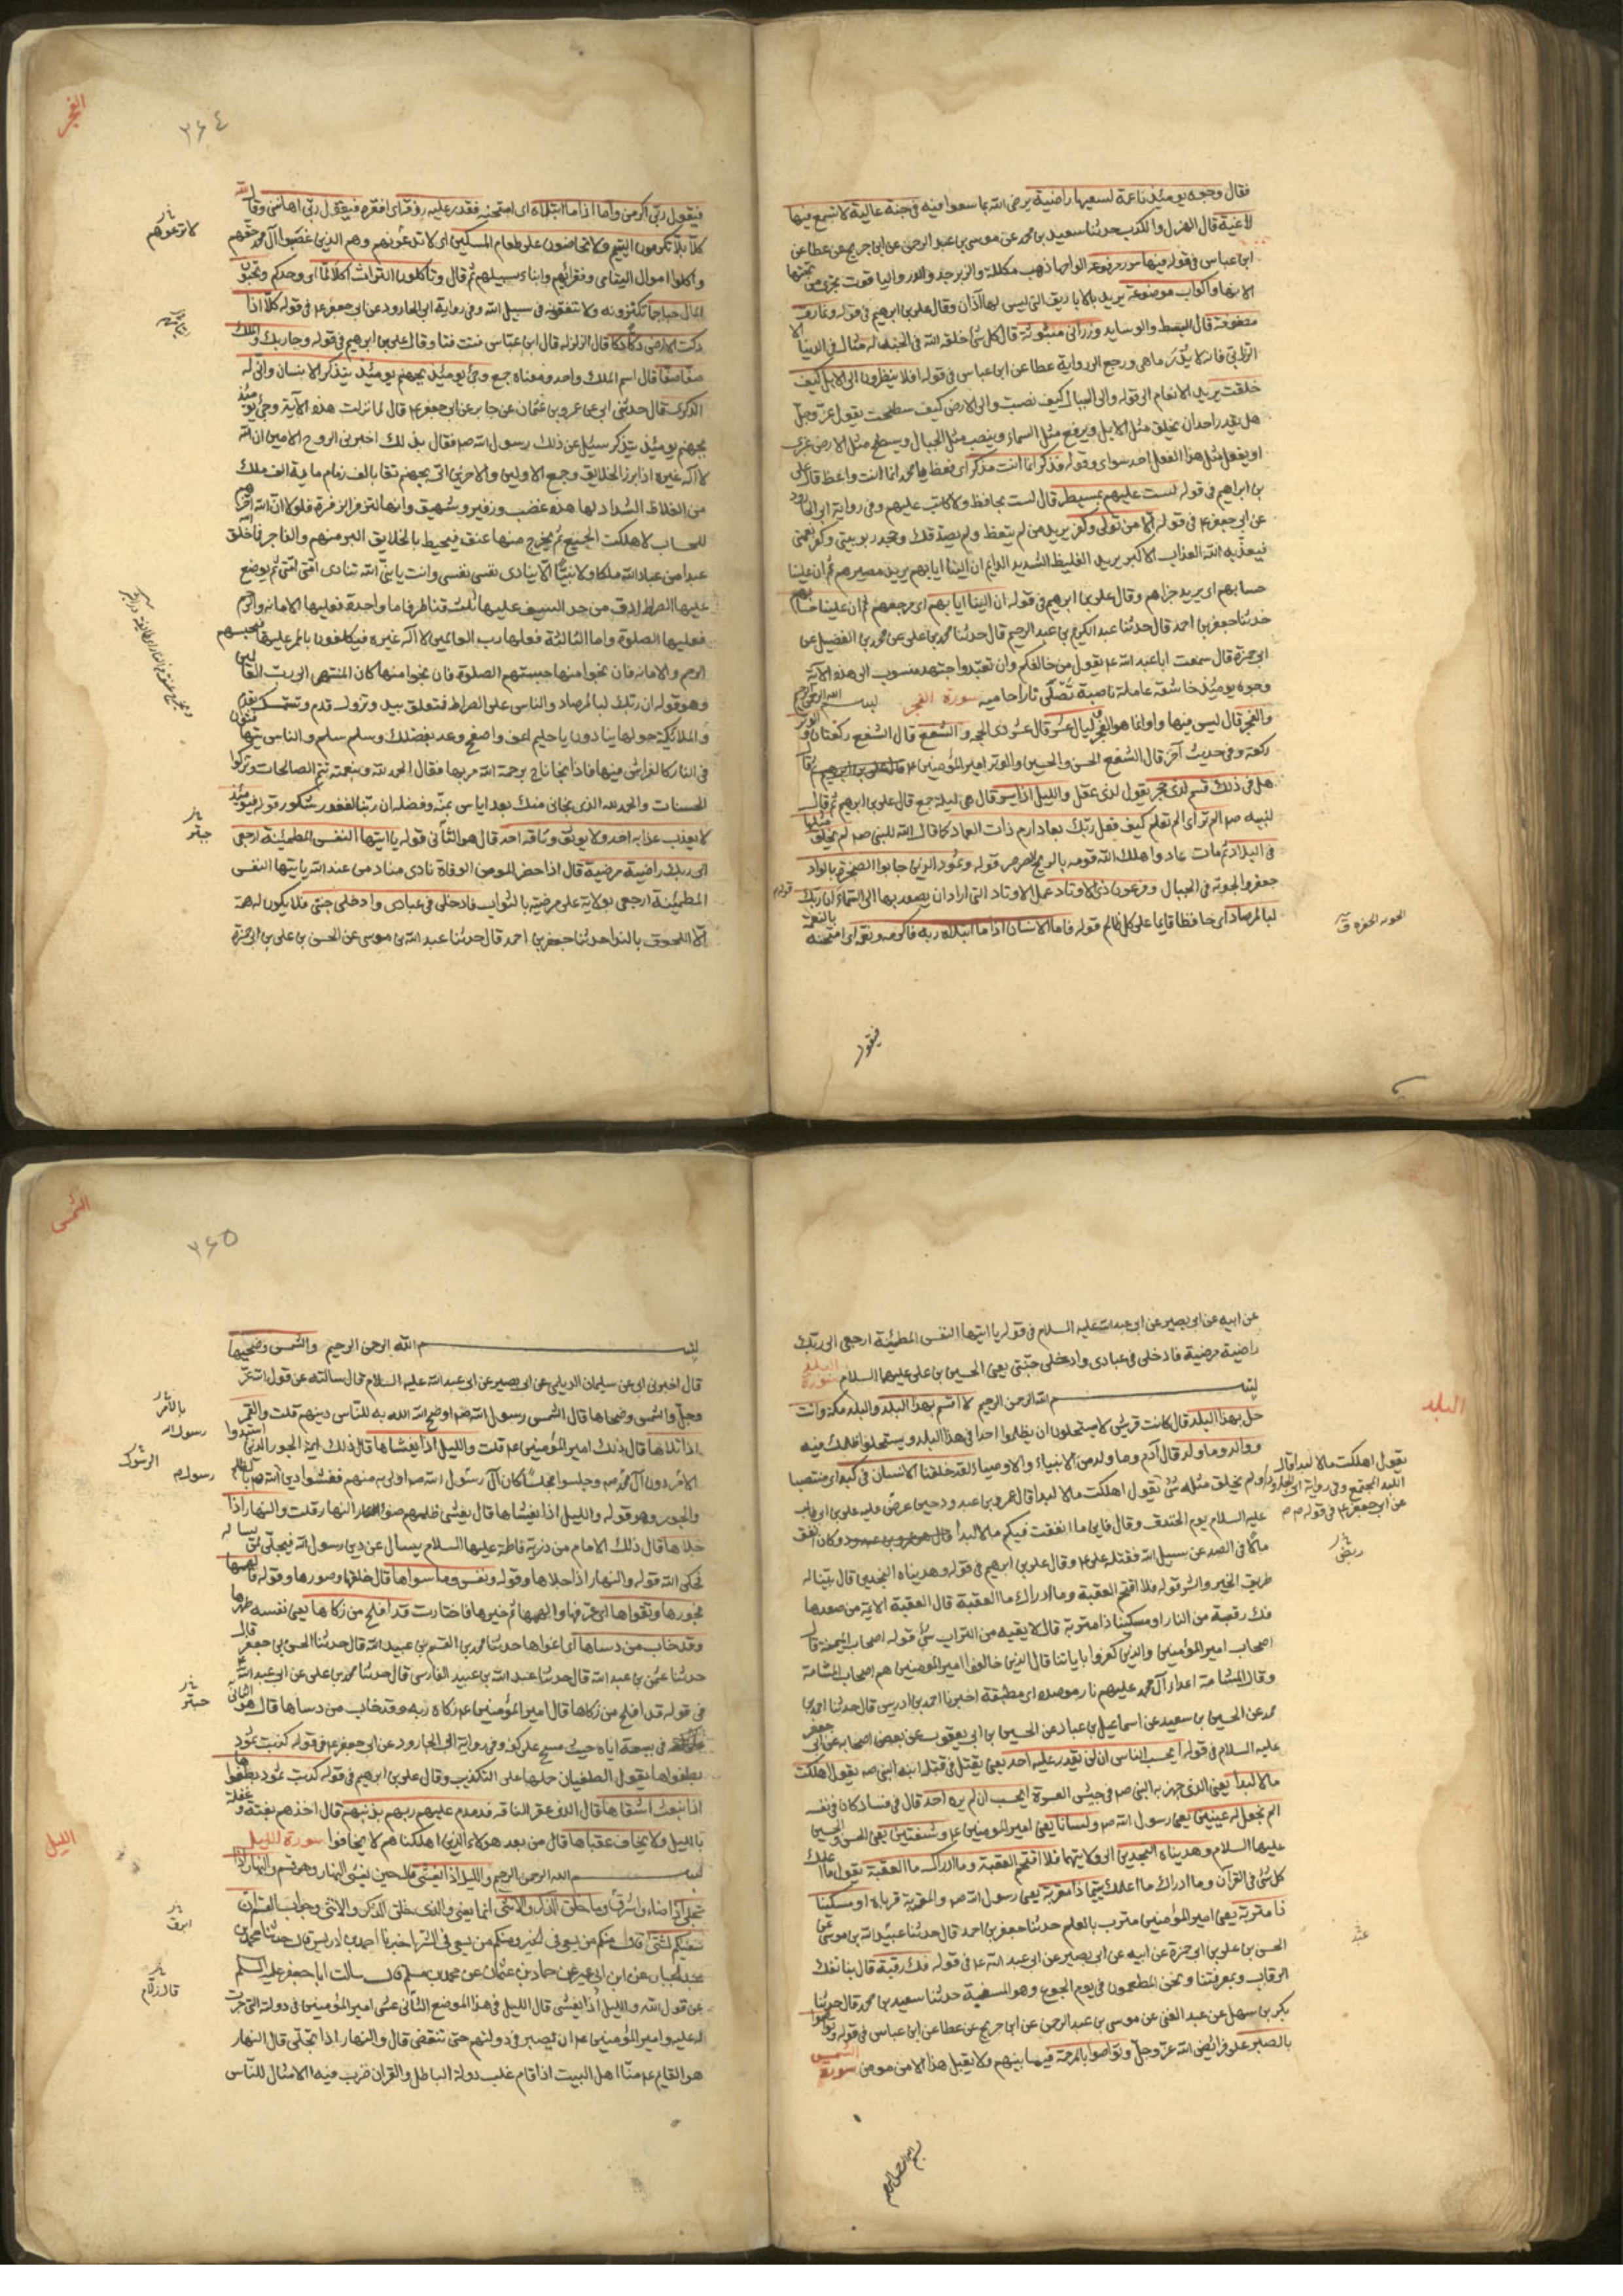 فقال وجوه يومئذ ناعمة لسعيها راضية يرضى الله بما سعوا فيه في جنة عالية لا تسمع فيها
لاغية قال الهزل والكذب حدثنا سعيد بن محمد عن موسى بن عبد الرحمن عن ابن جريج عن عطا عن
ابن عباس في قوله فيها سرر مرفوعة الواحها ذهب مكللة والزبرجد والدر والياقوت تجري من تحتها
الانهار واكواب موضوعة يريد بالاباريق التي ليس لها آذان وقال علي بن ابرهيم في قوله ونمارق
مصفوفة قال البسط والوسايد وزرابي مبثوثة قال كل شئ خلقه الله في الجنة له مثال في الدنيا الا
الزرابي فانه لا يدرى ما هي ورجع الى رواية عطا عن ابن عباس في قوله افلا ينظرون الى الابل كيف
خلقت يريد الانعام الى قوله والى الجبال كيف نصبت والى الارض كيف سطحت يقول عز وجل
هل يقدر احد ان يخلق مثل الابل ويرفع مثل السماء وينصب مثل الجبال ويسطح مثل الارض غيري
او يفعل مثل هذا الفعل احد سواي وقوله فذكر انما انت مذكر اي فعظ يا محمد انما انت واعظ قال علي
بن ابراهيم في قوله لست عليهم بمسيطر قال لست بحافظ ولا كاتب عليهم وفي رواية ابي الجارود
عن ابي جعفر ع في قوله الا من تولى وكفر يريد من لم يتعظ ولم يصدقك وجحد ربوبيتي وكفر نعمتي
فيعذبه الله العذاب الاكبر يريد الغليظ الشديد الدايم ان الينا ايابهم يريد مصيرهم ثم ان علينا
حسابهم اي يريد جزاهم وقال علي بن ابرهيم في قوله ان الينا ايابهم اي مرجعهم ثم ان علينا حسابهم
حدثنا جعفر بن احمد قال حدثنا عبد الكريم بن عبد الرحيم قال حدثنا محمد بن علي عن محمد بن الفضيل عن
ابي حمزة قال سمعت ابا عبد الله ع يقول من خالفكم وان تعبد واجتهد منسوب الى هذه الآية
وجوه يومئذ خاشعة عاملة ناصبة تصلى نارا حامية سورة الفجر بسم الله الرحمن الرحيم
والفجر قال ليس فيها واو انما هو الفجر وليال عشر قال عشر ذي الحجه والشفع قال الشفع ركعتان والوتر
ركعة وفي حديث آخر قال الشفع الحسن والحسين والوتر امير المؤمنين ع
هل في ذلك قسم لذي حجر يقول لذي عقل والليل اذا يسر قال هي ليلة جمع قال علي بن ابرهيم ثم قال
لنبيه صم الم تر اي الم تعلم كيف فعل ربك بعاد ارم ذات العماد كما قال الله للنبي صم لم يخلق مثلها
في البلاد ثم مات عاد واهلك الله قومه بالريح الصرصر قوله وثمود الذين جابوا الصخر بالواد
جعفروا الجوبة في الجبال وفرعون ذي الاوتاد عمل الاوتاد التي اراد ان يصعد بها الى السماء ان ربك
لبالمرصاد اي حافظا قايما على كل ظالم قوله فاما الانسان اذا ما ابتلاه ربه فاكرمه ونعمه اي امتحنه بالنعمة
فيقول
الفجر
٣٦٤
فيقول ربي اكرمن واما اذا ما ابتلاه اي امتحنه فقدر عليه رزقه اي افقره فيقول ربي اهانني وقال الله
كلا بل لا تكرمون اليتيم ولا تحاضون على طعام المسكين اي لا تدعونهم وهم الذين غصبوا آل محمد حقهم
واكلوا اموال اليتامى وفقرائهم وابناء سبيلهم ثم قال وتاكلون التراث اكلا لما اي وحدكم وتحبون
المال حبا جما تكنزونه ولا تنفقونه في سبيل الله وفي رواية ابي الجارود عن ابي جعفر ع في قوله كلا اذا
دكت الارض دكا دكا قال الزلزله قال ابن عباس فتت فتا وقال علي بن ابرهيم في قوله وجا ربك والملك
صفا صفا قال اسم الملك واحد ومعناه جمع وجئ يومئذ بجهنم يومئذ يتذكر الانسان وانى له
الذكرى قال حدثني ابي عن عمرو بن عثمان عن جابر عن ابي جعفر ع قال لما نزلت هذه الآية وجئ يومئذ
بجهنم يومئذ يتذكر سئل عن ذلك رسول الله صم فقال بذلك اخبرني الروح الامين ان الله
لا آله غيره اذا برز الخلايق وجمع الاولين والآخرين اتى بجهنم تقاد بالف زمام ماية الف ملك
من الغلاظ الشداد لها هده غضب وزفير وشهيق وانها لتزفر الزفرة فلولا ان الله اخرهم
للحساب لاهلكت الجميع ثم يخرج منها عنق فيحيط بالخلايق البر منهم والفاجر فما خلق
عبدا من عباد الله ملكا ولا نبيا الا ينادي نفسي نفسي وانت يا نبي الله تنادي امتي امتي ثم يوضع
عليها الصراط ادق من حد السيف عليها ثلث قناطر فاما واحدة فعليها الامانه والرحم
فعليها الصلوة واما الثالثة فعليها رب العالمين لا آله غيره فيكلفون بالممر عليها فيحبسهم
الرحم والامانه فان نجوا منها حبستهم الصلوة فان نجوا منها كان المنتهى الى رب العالمين
وهو قوله ان ربك لبالمرصاد والناس على الصراط فتعلق بيد وتزول قدم وتستمسك بقدم
والملائكة حولها ينادون يا حليم اعف واصفح وعد بفضلك وسلم سلم والناس يتهافتون
في النار كالفراش فيها فاذا نجا ناج برحمة الله مر بها فقال الحمد لله وبنعمته تتم الصالحات وتزكوا
الحسنات والحمد لله الذي نجاني منك بعد اياس بمنه وفضله ان ربنا لغفور شكور قوله فيومئذ
لا يعذب عذابه احد ولا يوثق وثاقه احد قال هو الثاني قوله يا ايتها النفس المطمئنة ارجعي
الى ربك راضية مرضية قال اذا حضر المومن الوفاة نادى مناد من عند الله يا ايتها النفس
المطمئنة ارجعي بولاية علي مرضية بالثواب فادخلي في عبادي وادخلي جنتي فلا يكون له همة
الا اللحوق بالندا حدثنا جعفر بن احمد قال حدثنا عبد الله بن موسى عن الحسن بن علي بن ابي حمزة
لا ترعونهم
حبتر
البلد
عن ابيه عن ابي بصير عن ابي عبد الله عليه السلام في قوله يا ايتها النفس المطمئنة ارجعي الى ربك
راضية مرضية فادخلي في عبادي وادخلي جنتي يعني الحسين بن علي عليهما السلام سورة البلد
بسم الله الرحمن الرحيم لا اقسم بهذا البلد والبلد مكة وانت
حل بهذا البلد قال كانت قريش لا يستحلون ان يظلموا احدا في هذا البلد ويستحلوا ظلمك فيه
ووالد وما ولد قال آدم وما ولد من الانبياء والاوصياء لقد خلقنا الانسان في كبد اي منتصبا
ولم يخلق مثله شئ يقول اهلكت مالا لبدا قال عمرو بن عبد ود حين عرض عليه علي بن ابي طالب
عليه السلام يوم الخندق وقال فاين ما انفقت فيكم مالا لبدا وكان انفق
مالا في الصد عن سبيل الله فقتله علي ع وقال علي بن ابرهيم في قوله وهديناه النجدين قال بينا له
طريق الخير والشر قوله فلا اقتحم العقبة وما ادراك ما العقبة قال العقبة الائمة من صعدها
فك رقبة من النار او مسكينا ذا متربة قال لا يقيه من التراب شئ قوله اصحاب الميمنة قال
اصحاب امير المؤمنين والذين كفروا باياتنا قال الذين خالفوا امير المومنين هم اصحاب المشامة
وقال المشامة اعداء آل محمد عليهم نار موصده اي مطبقة اخبرنا احمد بن ادريس قال حدثنا احمد بن
محمد عن الحسين بن سعيد عن اسماعيل بن عباد عن الحسين بن ابي يعقوب عن بعض اصحابه عن ابي جعفر
عليه السلام في قوله ايحسب الناس ان لن يقدر عليه احد يعني يقتل في قتله ابنه النبي صم يقول اهلكت
مالا لبدا يعني الذي جهز به النبي صم في جيش العسرة ايحسب ان لم يره احد قال في فساد كان في نفسه
الم نجعل له عينين يعني رسول الله صم ولسانا يعني امير المومنين ع وشفتين يعني الحسن والحسين
عليهما السلام وهديناه النجدين الى ولايتهما فلا اقتحم العقبة وما ادراك ما العقبة يقول ما اعلمك
كل شئ في القرآن وما ادراك ما اعلمك يتيما ذا مقربة يعني رسول الله صم والمقربة قرباه او مسكينا
ذا متربة يعني امير المؤمنين مترب بالعلم حدثنا جعفر بن احمد قال حدثنا عبيد الله بن موسى عن
الحسن بن علي بن ابي حمزة عن ابيه عن ابي بصير عن ابي عبد الله ع في قوله فك رقبة قال بنا تفك
الرقاب وبمعرفتنا ونحن المطعمون في يوم الجوع وهو المسغبة حدثنا سعيد بن محمد قال حدثنا
بكر بن سهل عن عبد الغني عن موسى بن عبد الرحمن عن ابن جريج عن عطا عن ابن عباس في قوله وتواصوا
بالصبر على فرايض الله عز وجل وتواصوا بالمرحمة فيما بينهم ولا يقبل هذا الا من مومن سورة الشمس
يقول اهلكت مالا لبدا قال
اللبد المجتمع وفي رواية ابي الجارود
عن ابي جعفر ع في قوله
بسم الله الرحمن الرحيم
الشمس
٣٦٥
بسم الله الرحمن الرحيم والشمس وضحيها
قال اخبرني ابي عن سليمان الديلمي عن ابي بصير عن ابي عبد الله عليه السلام قال سالته عن قول الله عز
وجل والشمس وضحاها قال الشمس رسول الله صم اوضح الله به للناس دينهم قلت والقمر
اذا تلاها قال ذلك امير المؤمنين ع قلت والليل اذا يغشاها قال ذلك ائمة الجور الذين استبدوا
الامر دون آل محمد صم وجلسوا مجلسا كان آل رسول الله صم اولى به منهم فغشوا دين الله بالظلم
والجور وهو قوله والليل اذا يغشاها قال يغشى ظلمهم ضوء النهار قلت والنهار اذا
جلاها قال ذلك الامام من ذرية فاطمة عليها السلام يسال عن دين رسول الله فيجلي لمن يساله
فحكى الله قوله والنهار اذا جلاها وقوله ونفس وما سواها قال خلقها وصورها وقوله فالهمها
فجورها وتقواها اي عرفها والهمها ثم خيرها فاختارت قد افلح من زكاها يعني نفسه طهرها
وقد خاب من دساها اي اغواها حدثنا محمد بن القسم بن عبيد الله قال حدثنا الحسن بن جعفر قال
حدثنا عثمن بن عبد الله قال حدثنا عبد الله بن عبيد الفارسي قال حدثنا محمد بن علي عن ابي عبد الله ع
في قوله قد افلح من زكاها قال امير المؤمنين ع زكاه ربه وقد خاب من دساها قال هو الثاني
في بيعة اياه حيث مسح على كفه وفي رواية ابي الجارود عن ابي جعفر ع في قوله كذبت ثمود
بطغواها يقول الطغيان حملها على التكذيب وقال علي بن ابرهيم في قوله كذبت ثمود بطغواها
اذا نبعث اشقاها قال الذي عقر الناقه فدمدم عليهم ربهم بذنبهم قال اخذهم بغتة وغفلة
بالليل ولا يخاف عقباها قال من بعد هولاء الذين اهلكناهم لا يخافوا سورة الليل
بسم الله الرحمن الرحيم والليل اذا يغشى قال حين يغشى النهار وهو قسم والنهار اذا
تجلى اذا اضاء واشرق وما خلق الذكر والانثى انما يعني والذي خلق الذكر والانثى وجواب القسم ان
سعيكم لشتى قال منكم من يسعى في الخير ومنكم من يسعى في الشر اخبرنا احمد بن ادريس قال حدثنا محمد بن
عبد الجبار عن ابن ابي عمير عن حماد بن عثمان عن محمد بن مسلم قال سالت ابا جعفر عليه السلم
عن قول الله والليل اذا يغشى قال الليل في هذا الموضع الثاني غشى امير المؤمنين في دولته التي جرت
له عليه وامير المؤمنين ع ان يصبر في دولتهم حتى تنقضي قال والنهار اذا تجلى قال النهار
هو القايم ع منا اهل البيت اذا قام غلب دولة الباطل والقران ضرب فيه الامثال للناس
رسول الله
حبتر
الليل